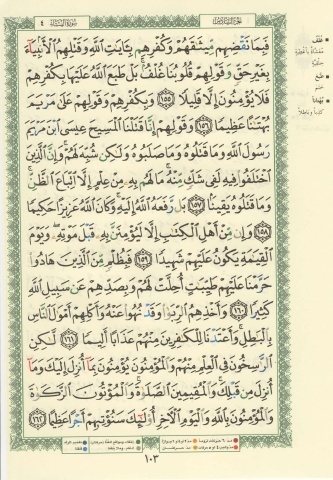 سورة النساء ٤
الجزء السادس
فَبِمَا نَقْضِهِم مِّيثَٰقَهُمْ وَكُفْرِهِم بِـَٔايَٰتِ ٱللَّهِ وَقَتْلِهِمُ ٱلْأَنۢبِيَآءَ
بِغَيْرِ حَقٍّ وَقَوْلِهِمْ قُلُوبُنَا غُلْفٌۢ ۚ بَلْ طَبَعَ ٱللَّهُ عَلَيْهَا بِكُفْرِهِمْ
فَلَا يُؤْمِنُونَ إِلَّا قَلِيلًا ١٥٥ وَبِكُفْرِهِمْ وَقَوْلِهِمْ عَلَىٰ مَرْيَمَ
بُهْتَٰنًا عَظِيمًا ١٥٦ وَقَوْلِهِمْ إِنَّا قَتَلْنَا ٱلْمَسِيحَ عِيسَى ٱبْنَ مَرْيَمَ
رَسُولَ ٱللَّهِ وَمَا قَتَلُوهُ وَمَا صَلَبُوهُ وَلَٰكِن شُبِّهَ لَهُمْ ۚ وَإِنَّ ٱلَّذِينَ
ٱخْتَلَفُوا۟ فِيهِ لَفِى شَكٍّ مِّنْهُ ۚ مَا لَهُم بِهِۦ مِنْ عِلْمٍ إِلَّا ٱتِّبَاعَ ٱلظَّنِّ ۚ
وَمَا قَتَلُوهُ يَقِينًۢا ١٥٧ بَل رَّفَعَهُ ٱللَّهُ إِلَيْهِ ۚ وَكَانَ ٱللَّهُ عَزِيزًا حَكِيمًا
١٥٨ وَإِن مِّنْ أَهْلِ ٱلْكِتَٰبِ إِلَّا لَيُؤْمِنَنَّ بِهِۦ قَبْلَ مَوْتِهِۦ ۖ وَيَوْمَ
ٱلْقِيَٰمَةِ يَكُونُ عَلَيْهِمْ شَهِيدًا ١٥٩ فَبِظُلْمٍ مِّنَ ٱلَّذِينَ هَادُوا۟
حَرَّمْنَا عَلَيْهِمْ طَيِّبَٰتٍ أُحِلَّتْ لَهُمْ وَبِصَدِّهِمْ عَن سَبِيلِ ٱللَّهِ
كَثِيرًا ١٦٠ وَأَخْذِهِمُ ٱلرِّبَوٰا۟ وَقَدْ نُهُوا۟ عَنْهُ وَأَكْلِهِمْ أَمْوَٰلَ ٱلنَّاسِ
بِٱلْبَٰطِلِ ۚ وَأَعْتَدْنَا لِلْكَٰفِرِينَ مِنْهُمْ عَذَابًا أَلِيمًا ١٦١ لَّٰكِنِ
ٱلرَّٰسِخُونَ فِى ٱلْعِلْمِ مِنْهُمْ وَٱلْمُؤْمِنُونَ يُؤْمِنُونَ بِمَآ أُنزِلَ إِلَيْكَ وَمَآ
أُنزِلَ مِن قَبْلِكَ ۚ وَٱلْمُقِيمِينَ ٱلصَّلَوٰةَ ۚ وَٱلْمُؤْتُونَ ٱلزَّكَوٰةَ
وَٱلْمُؤْمِنُونَ بِٱللَّهِ وَٱلْيَوْمِ ٱلْـَٔاخِرِ أُو۟لَٰٓئِكَ سَنُؤْتِيهِمْ أَجْرًا عَظِيمًا ١٦٢
١٠٣